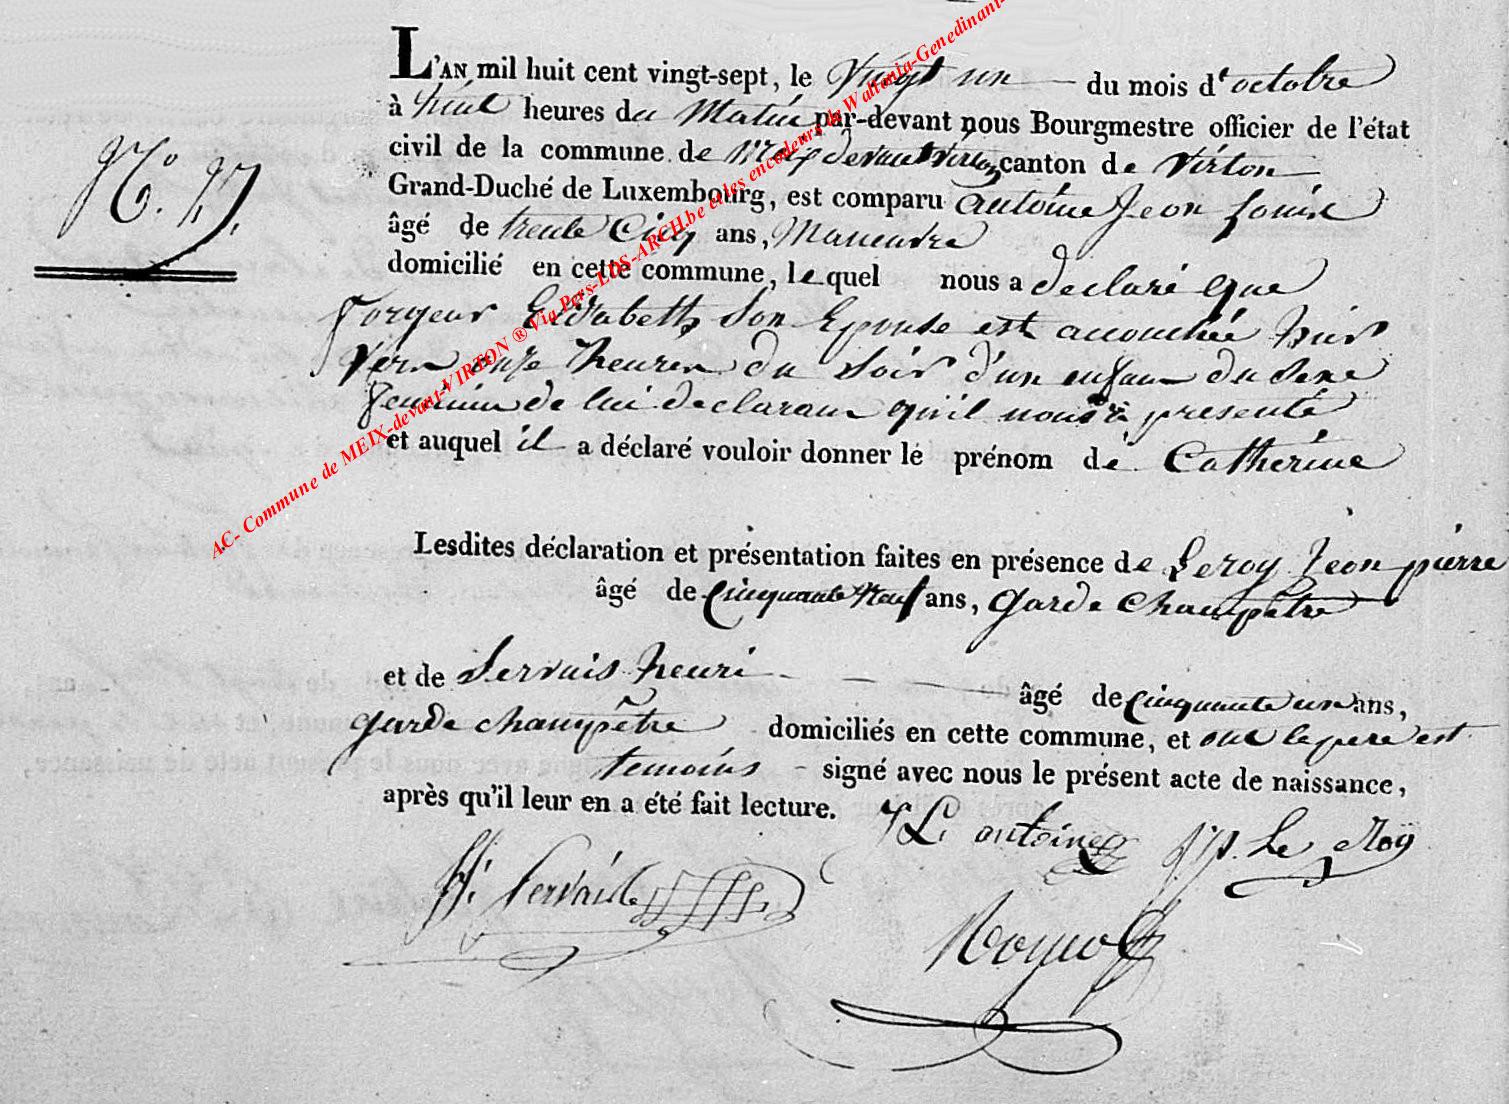 L'AN mil huit cent vingt-sept, le Vingt un du mois d'octobre
à huit heures du Matin par-devant nous Bourgmestre officier de l'état
civil de la commune de Meix devant Virton canton de Virton
Grand-Duché de Luxembourg, est comparu antoine Jean Louis
âgé de trente Cinq ans, Maneuvre
domicilié en cette commune, lequel nous a declaré que
forgeur Elisabeth, Son Epouse est accouchée hier
vers onze heures du soir d'un enfant du Sexe
feminin de lui declarant qu'il nous à presenté
et auquel il a déclaré vouloir donner le prénom de Catherine
Lesdites déclaration et présentation faites en présence de Leroy Jean pierre
âgé de Cinquante Neuf ans, garde champêtre
et de Servais henri âgé de Cinquante un ans,
garde champêtre domiciliés en cette commune, et ont le pere est
temoins signé avec nous le présent acte de naissance,
après qu'il leur en a été fait lecture.
JL antoine J.p. Le Roÿ
H. Servais
N.° 27.
AC- Commune de MEIX-devant-VIRTON ® Via Pers-LDS-ARCH.be et les encodeurs de Waltonia-Genedinant-